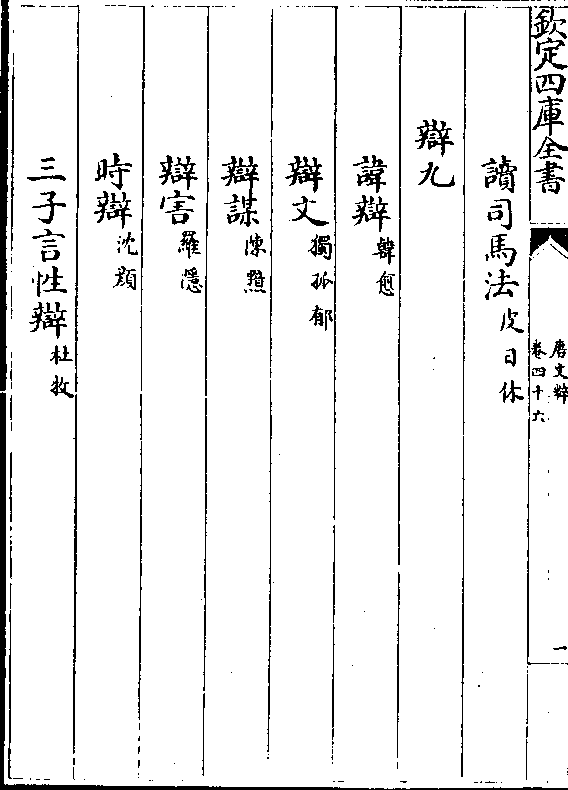 欽定四庫全書
唐文粹
卷四十六
一
讀司馬法皮日休
辯九
諱辯韓愈
辯文獨孤郁
辯謀陳黯
辯害羅隱
時辯沈顔
三子言性辯杜牧